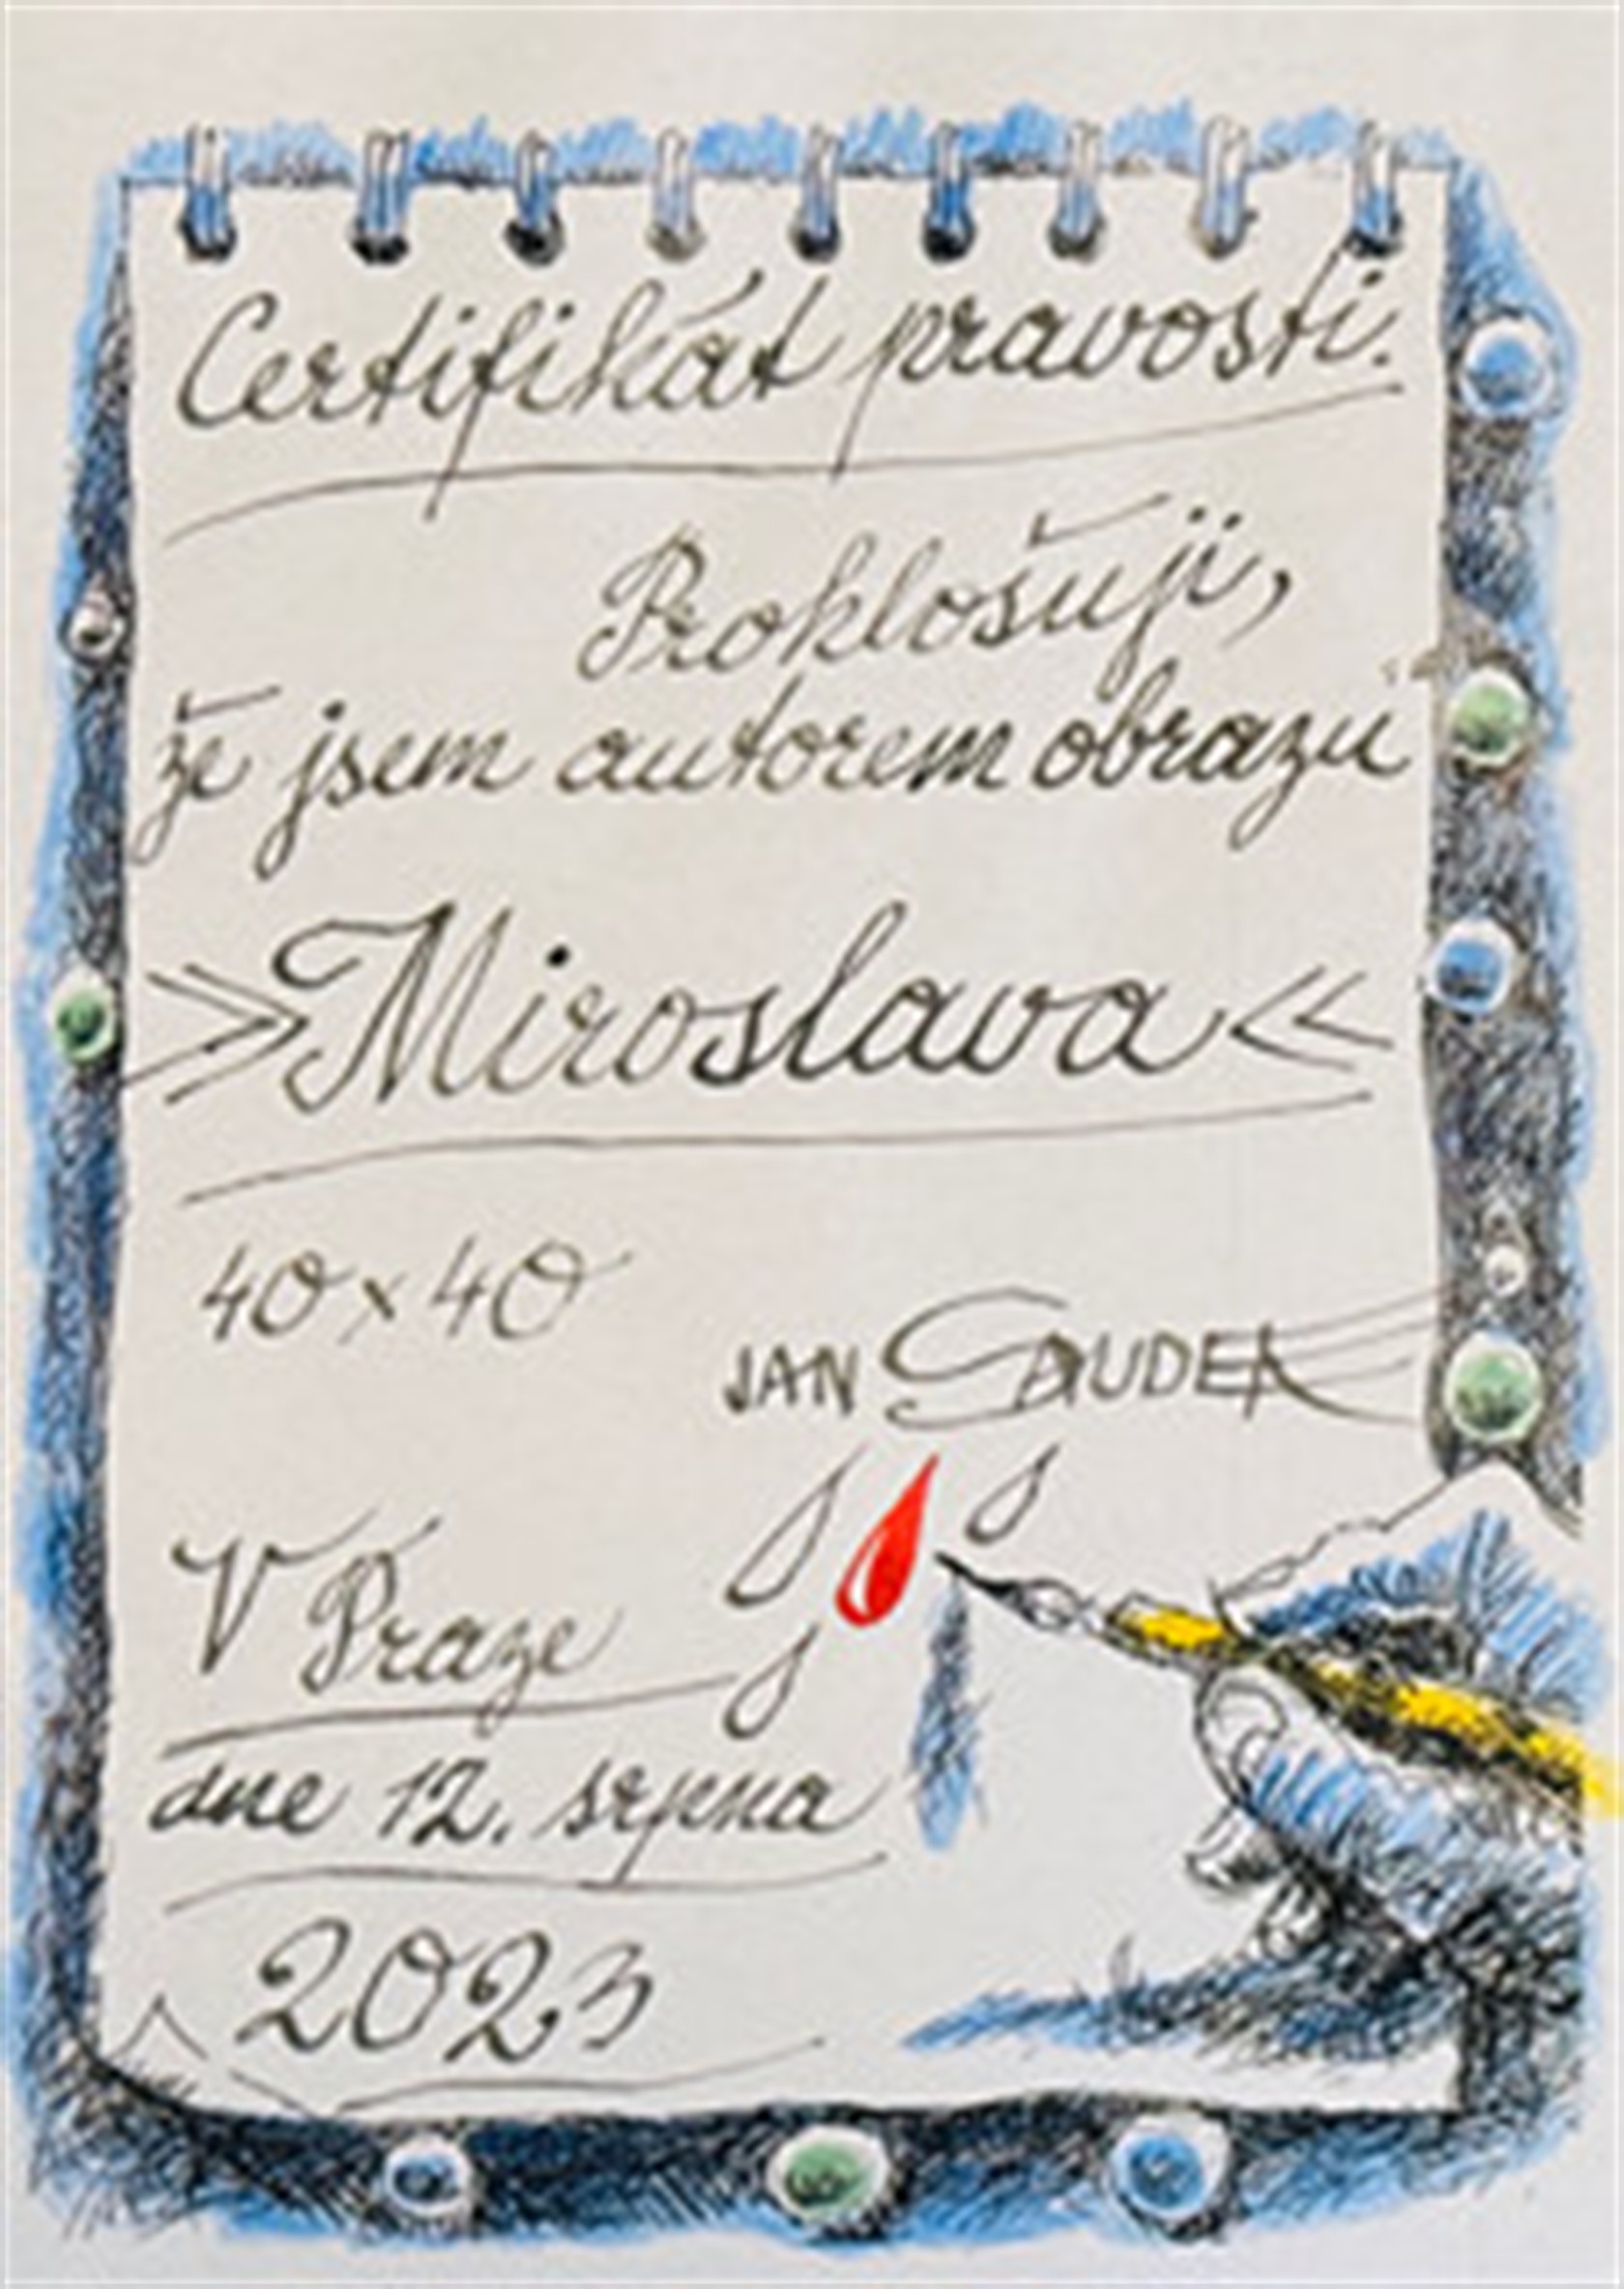 Certifikát pravosti.
Proklošuji,
že jsem autorem obrazu
»Miroslava«
40x40
JAN SAUDEK
V Praze
dne 12. srpna
2023